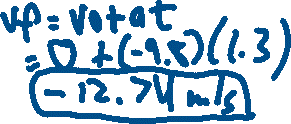 vf = v0 + at
= 0 + (-9.8)(1.3)
-12.74 m/s